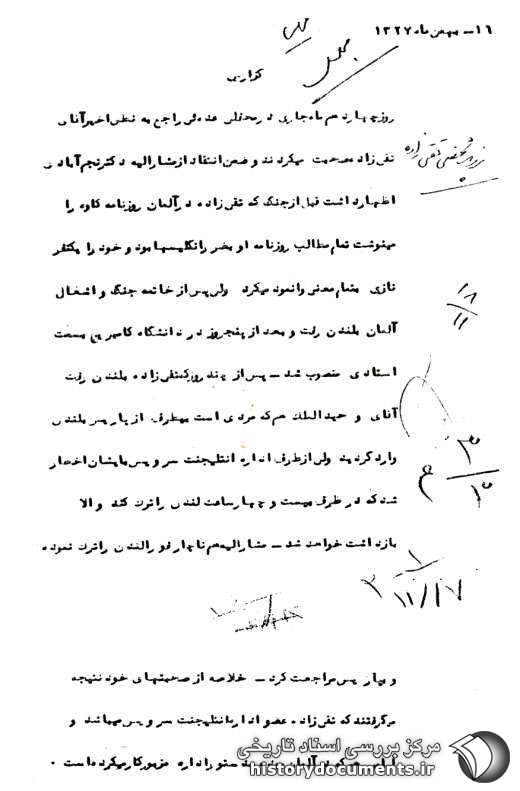 ۱۶ــ بهمن ماه ۱۳۲۷
محل
گزارش
روز چهاردهم ماه جاری در محفلی عده‌ئی راجع به نطق اخیر آقای
تقی زاده صحبت میکردند و ضمن انتقاد از مشارالیه دکتر نجم آبادی
پرونده شخصی تقی زاده
اظهار داشت قبل از جنگ که تقی زاده در آلمان روزنامه کاوه را
مینوشت تمام مطالب روزنامه او بضرر انگلیسها بود و خود را یکنفر
نازی بتمام معنی وانمود میکرد ولی پس از خاتمه جنگ و اشغال
۱۸/۱۱
آلمان بلندن رفت و بعد از پنجروز در دانشگاه کامبریج بسمت
استادی منصوب شد ــ پس از چند روز که تقی زاده بلندن رفت
آقای وحیدالملک هم که مردی است بیطرف از پاریس بلندن
وارد گردید ولی از طرف اداره انتلیجنت سرویس بایشان اخطار
شد که در ظرف بیست و چهار ساعت لندن را ترک کند و الا
بازداشت خواهد شد ــ مشارالیه هم ناچار فورا لندن را ترک نموده
۱۱/۱۷
و بپاریس مراجعت کرد ــ خلاصه از صحبتهای خود نتیجه
میگرفتند که تقی زاده عضو اداره انتلیجنت سرویس میباشد و
در آلمان اداره مزبور کار میکرده است ۰
مرکز بررسی اسناد تاریخی
historydocuments.ir